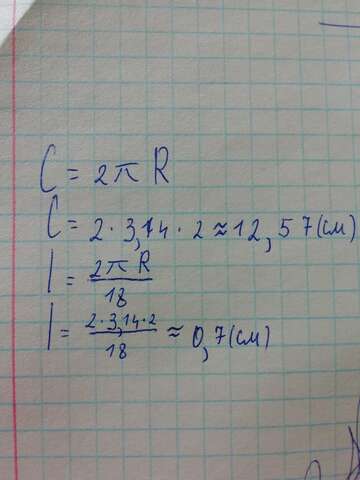 C = 2πR
C = 2·3,14·2 ≈ 12,57(см)
l = 2πR/18
l = 2·3,14·2/18 ≈ 0,7(см)